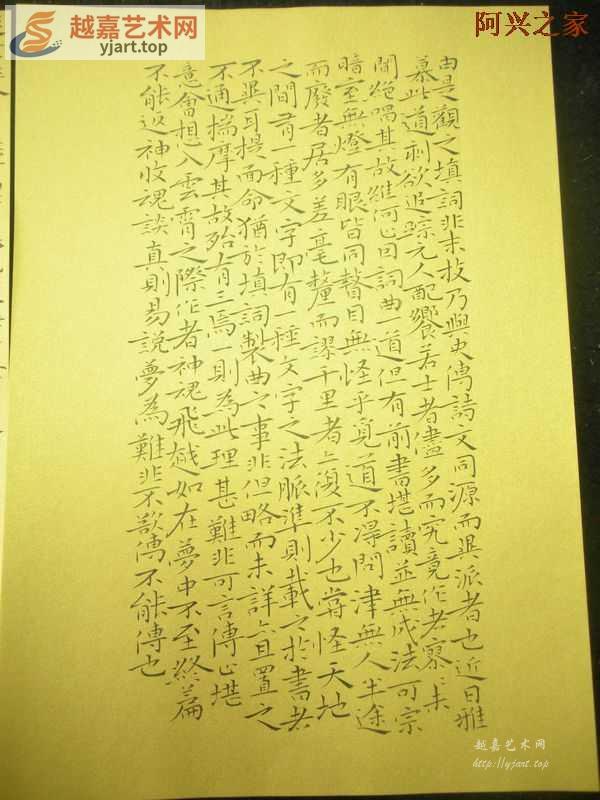 越嘉艺术网
yjart.top
阿兴之家
由是觀之填詞非末技乃與史傳詩文同源而異派者也近日雅
慕此道刺欲追踪元人配饗若士者儘多而究竟作者寥〻未
聞絕唱其故維何止因詞曲一道但有前書堪讀並無成法可宗
暗室無燈有眼皆同瞽目無怪乎覓道不得問津無人半途
而廢者居多差毫釐而謬千里者亦復不少也嘗怪天地
之間有一種文字即有一種文字之法脈準則載之於書者
不異耳提面命獨於填詞製曲之事非但略而未詳亦且置之
不道揣摩其故殆有三焉一則為此理甚難非可言傳止堪
意會想入雲霄之際作者神魂飛越如在夢中不至終篇
不能返神收魂談真則易說夢為難非不欲傳不能傳也
越嘉艺术网
http://yjart.top